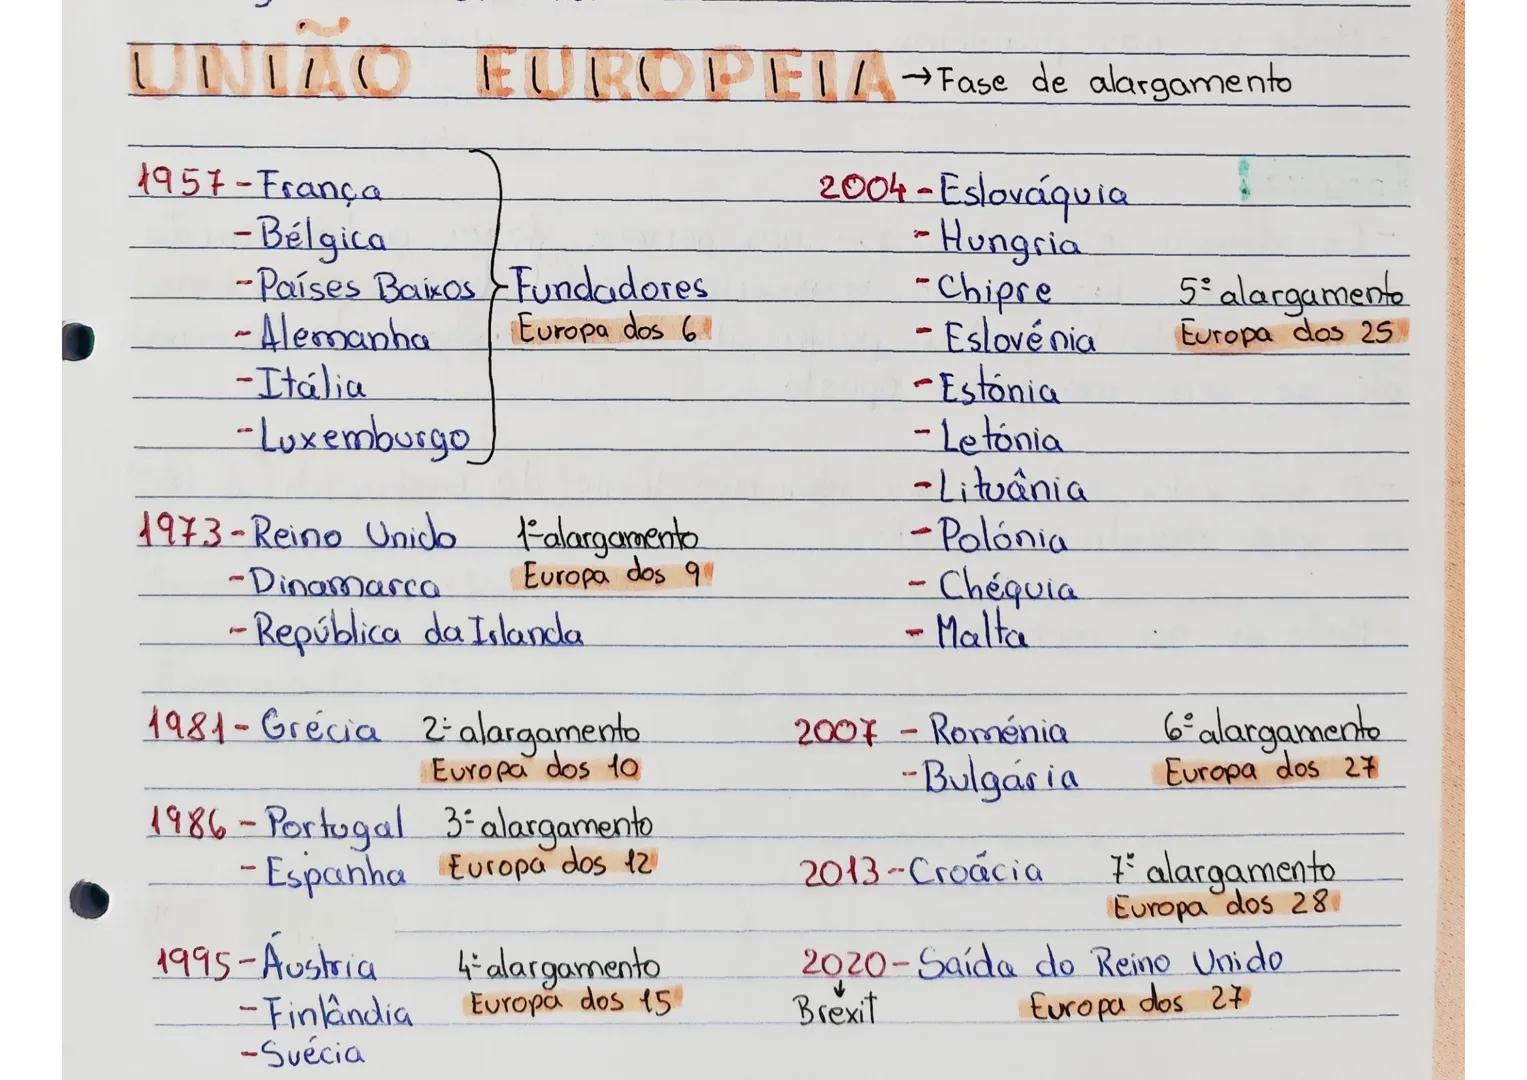 UNIÃO EUROPEIA → Fase de alargamento
1957 - França
- Bélgica
- Países Baixos
- Alemanha
- Itália
- Luxemburgo
Fundadores
Europa dos 6
1973 - Reino Unido
- Dinamarca
- República da Islanda
1º alargamento
Europa dos 9
1981 - Grécia 2º alargamento
Europa dos 10
1986 - Portugal 3º alargamento
- Espanha Europa dos 12
1995 - Áustria 4º alargamento
- Finlândia Europa dos 15
- Suécia
2004 - Eslováquia
- Hungria
- Chipre
- Eslovénia
- Estónia
- Letónia
- Lituânia
- Polónia
- Chéquia
- Malta
5º alargamento
Europa dos 25
2007 - Roménia 6º alargamento
- Bulgária Europa dos 27
2013 - Croácia 7º alargamento
Europa dos 28
2020 - Saída do Reino Unido
↓
Brexit Europa dos 27